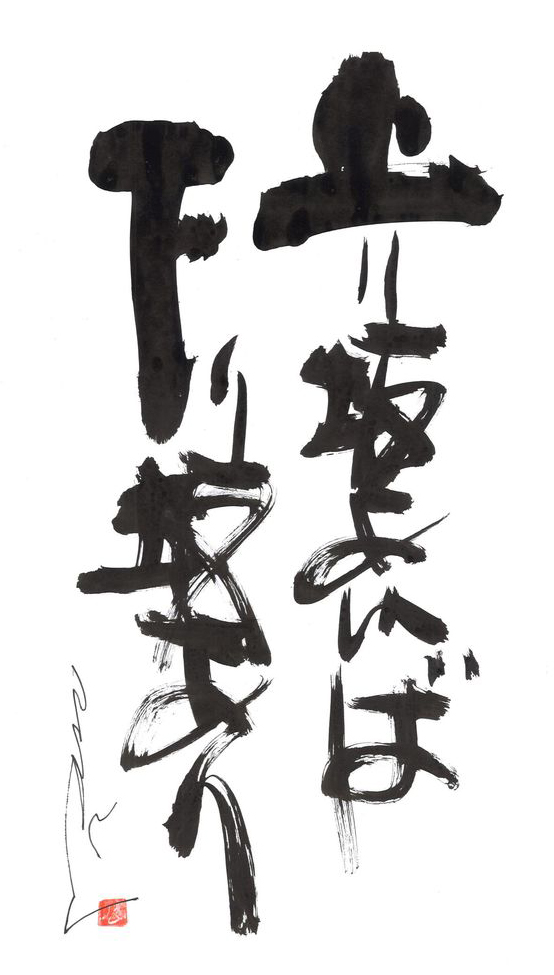 上り坂あれば
下り坂あり